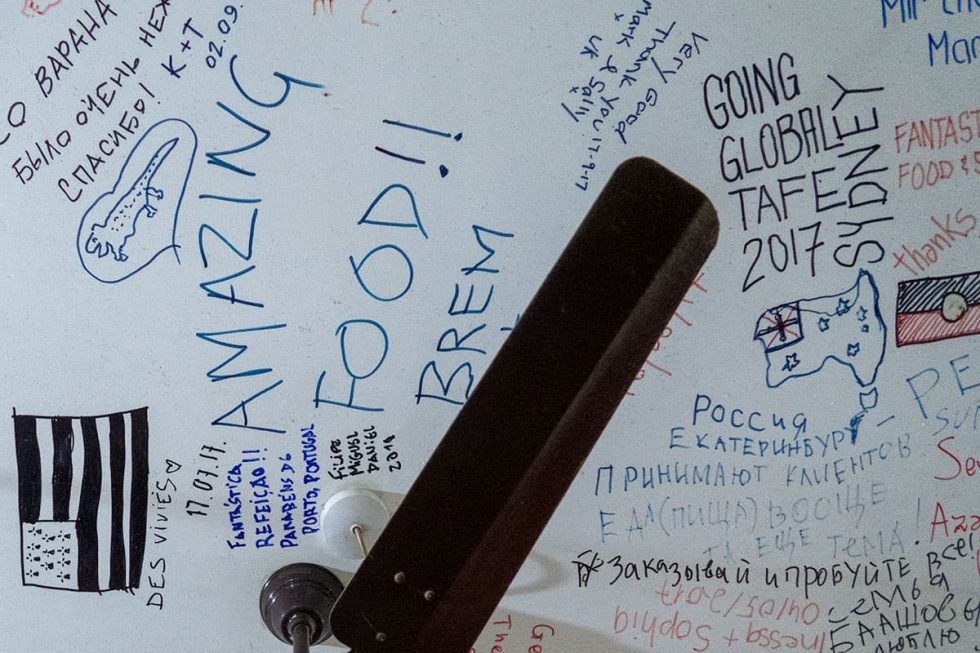 ВАРАНА
БЫЛО ОЧЕНЬ НЕЖ
СПАСИБО!
К + Т
02.09.
AMAZING
FOOD!!
BREM
Very Good
Thank you 17-9-17
Mark & Sally
UK
GOING
GLOBAL
TAFE
2017
SYDNEY
FANTAST
FOOD &
thanks
DES VIVIÉS♡
17.07.17.
FANTÁSTICA
REFEIÇÃO!!
PARABÉNS DG
PORTO, PORTUGAL
FILIPE
MIGUEL
DANIEL
2014
РОССИЯ
ЕКАТЕРИНБУРГ
ПРИНИМАЮТ КЛИЕНТОВ
ЕДА(ПИЩА) ВООЩЕ
ТА ЕЩЕ ТЕМА!
Заказывай и пробуйте всё!
СЕМЬЯ
БААШОВЫ
ЛЮБЛЮ
Inessa + Sophia
04/05/2017